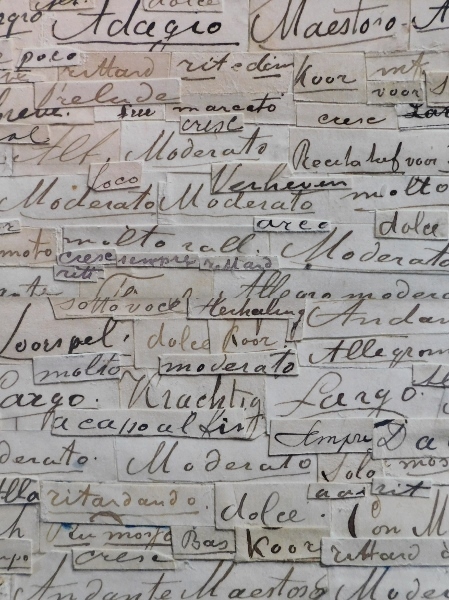 Adagio Maestoso
poco
rittard rit e dim Koor mf
Prelude voor
marcato
cresc cresc
Alf. Moderato Recitatief voor
loco Verheven molto
Moderato Moderato
arco dolce
moto molto rall. Moderato
cresc sempre rittard
ritt
sotto voce Allegro modera
Herhaling Andan
Voorspel. dolce Koor.
molto moderato Allegro
Largo. Krachtig Largo.
a capo al Sempre Da
derato. Moderato Solo mos
Alla ritardando. rit
dolce. Con M
Piu mosso Bas Koor
cresc rittard
Andante Maestoso Moder